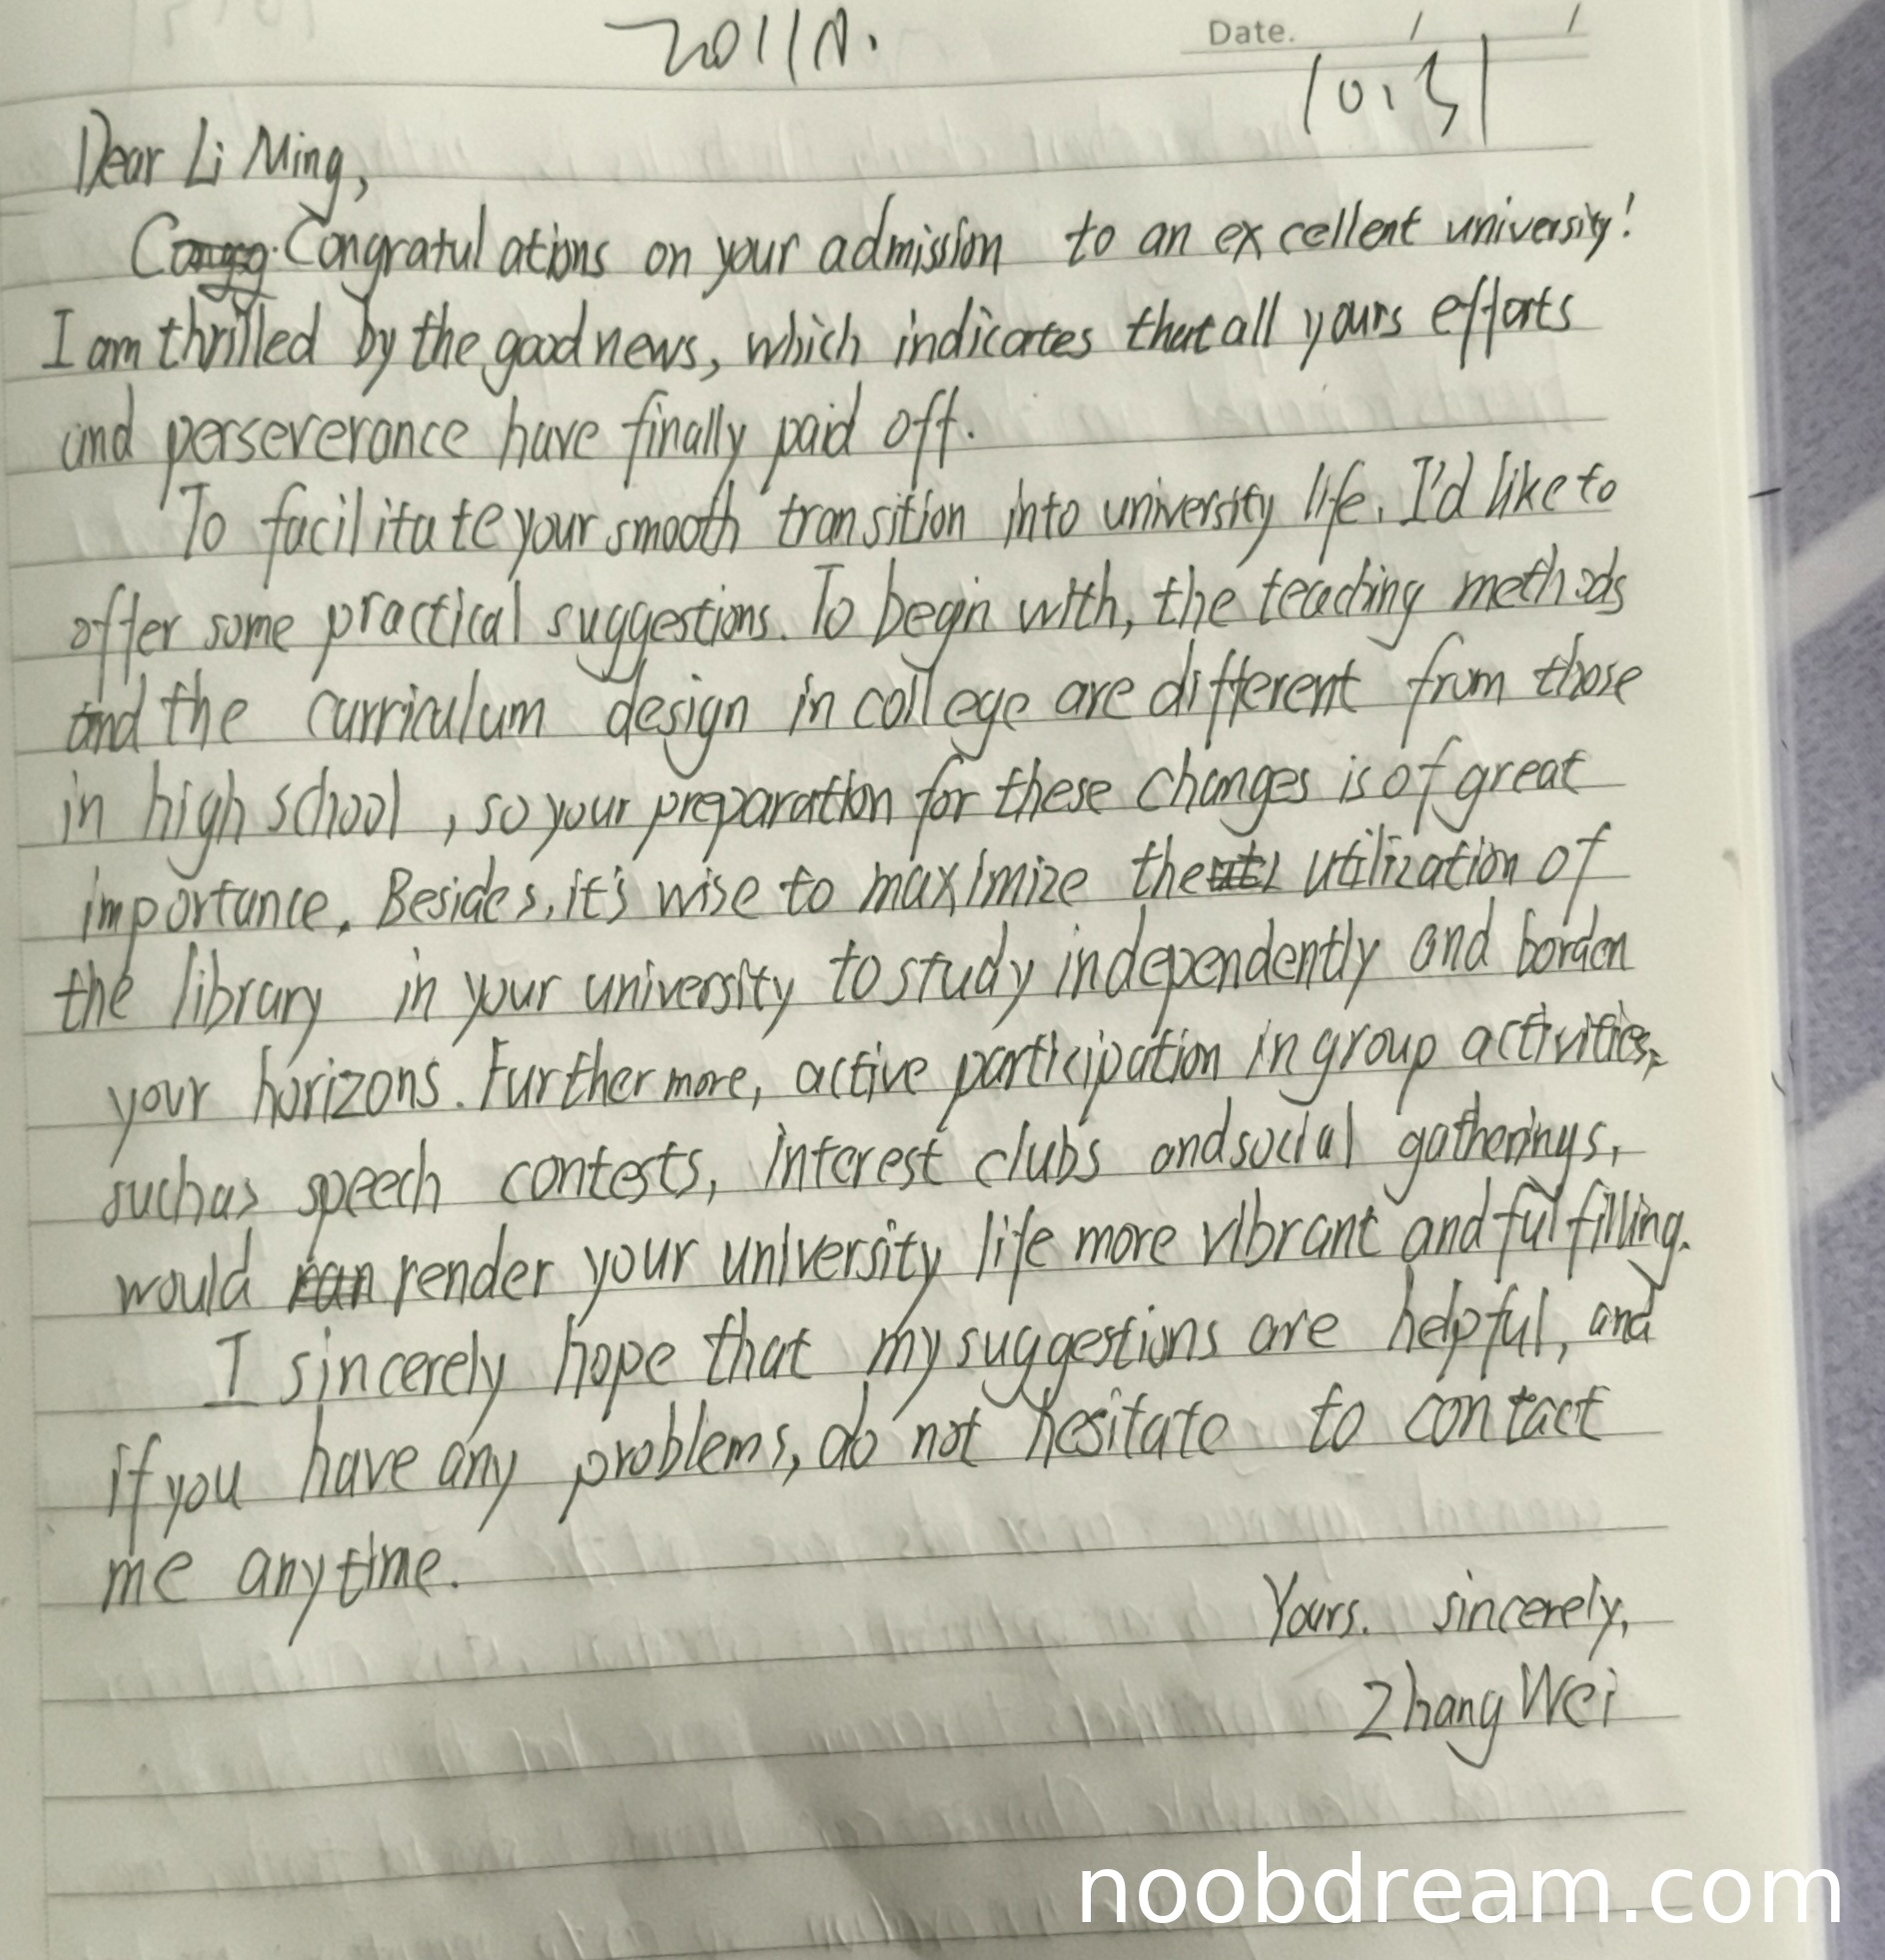 2011A.
Date. / /
10.31
Dear Li Ming,
Congratulations on your admission to an excellent university!
I am thrilled by the good news, which indicates that all yours efforts
and perseverance have finally paid off.
To facilitate your smooth transition into university life, I'd like to
offer some practical suggestions. To begin with, the teaching methods
and the curriculum design in college are different from those
in high school, so your preparation for these changes is of great
importance. Besides, it's wise to maximize the utilization of
the library in your university to study independently and borden
your horizons. Furthermore, active participation in group activities,
such as speech contests, interest clubs and social gatherings,
would render your university life more vibrant and fulfilling.
I sincerely hope that my suggestions are helpful, and
if you have any problems, do not hesitate to contact
me anytime.
Yours. sincerely,
Zhang Wei
noobdream.com